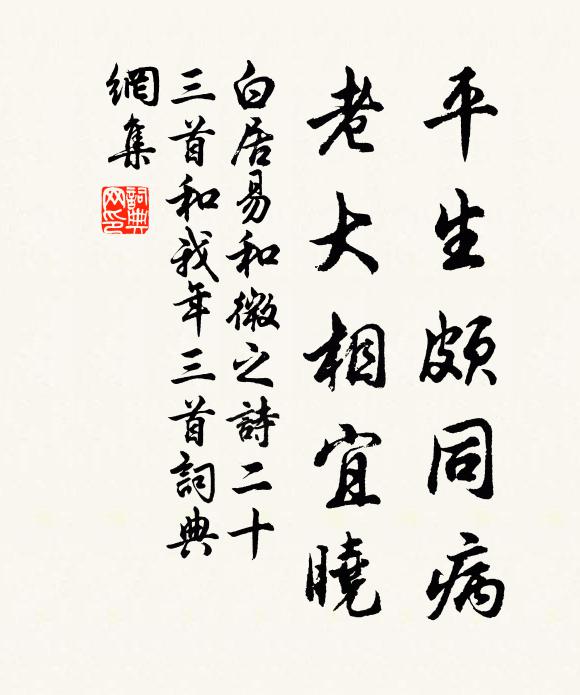 平生頗同病
老大相宜曉
白居易和微之詩二十
三首和我年三首詞典
網集
詞典
网印